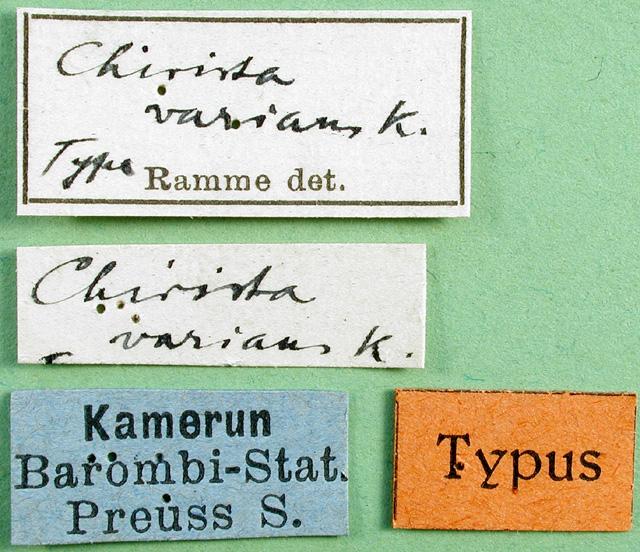 Chirista
varians K.
Type Ramme det.
Chirista
varians K.
Kamerun
Barombi-Stat.
Preuss S.
Typus